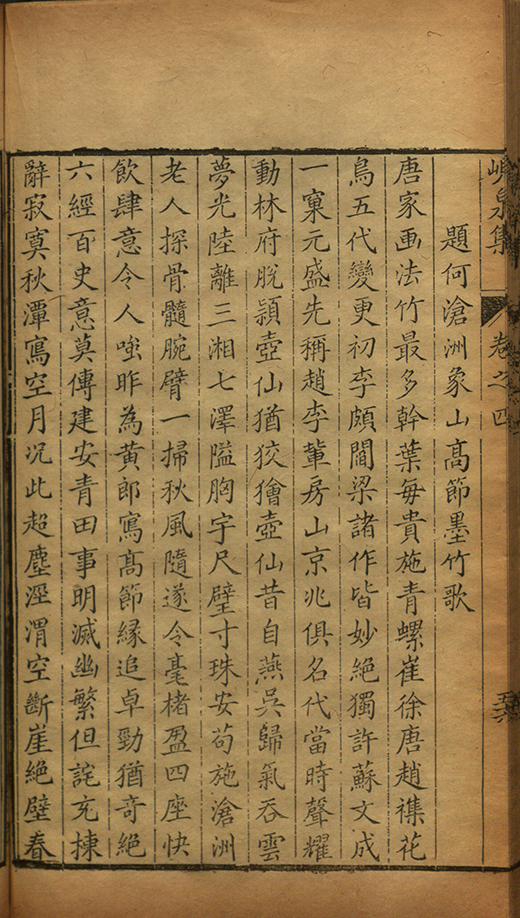 峴泉集 卷之四 五六
題何滄洲象山髙節墨竹歌
唐家画法竹最多幹葉每貴施青螺崔徐唐趙襍花
鳥五代變更初李頗閻梁諸作皆妙絕獨許蘇文成
一窠元盛先稱趙李軰房山京兆俱名代當時聲耀
動林府脫頴壺仙猶狡獪壺仙昔自燕吳歸氣吞雲
夢光陸離三湘七澤隘胸宇尺璧寸珠安茍施滄洲
老人探骨髓腕臂一掃秋風隨遂令毫楮盈四座快
飲肆意令人嗤昨為黄郎寫髙節緑追卓勁猶竒絕
六經百史意莫傳建安青田事明滅幽繁但詫充揀
辭寂寞秋潭寫空月况此超塵涇渭空斷崖絕壁春